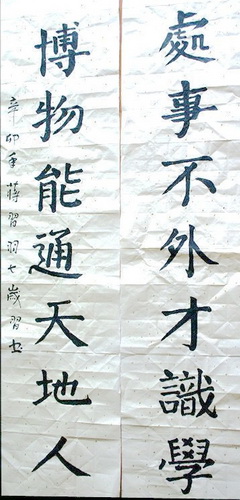 處事不外才識學
博物能通天地人
辛卯年蔣習羽七歲習書